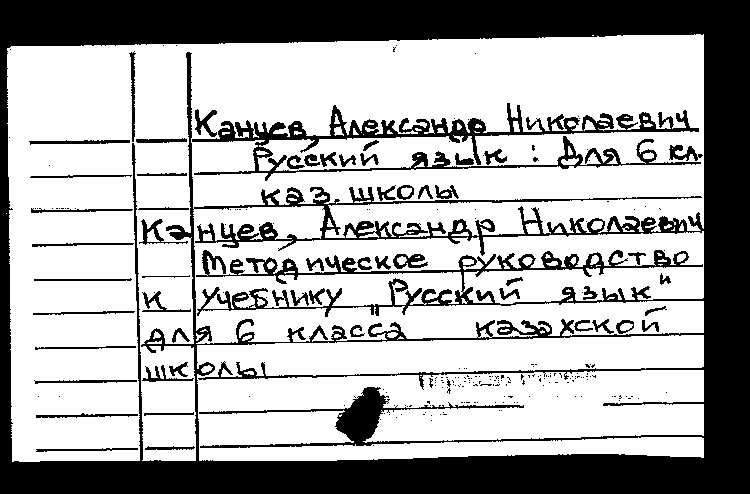 Канцев, Александр Николаевич
Русский язык : Для 6 кл.
каз. школы
Канцев, Александр Николаевич
Методическое руководство
к учебнику „Русский язык"
для 6 класса казахской
школы